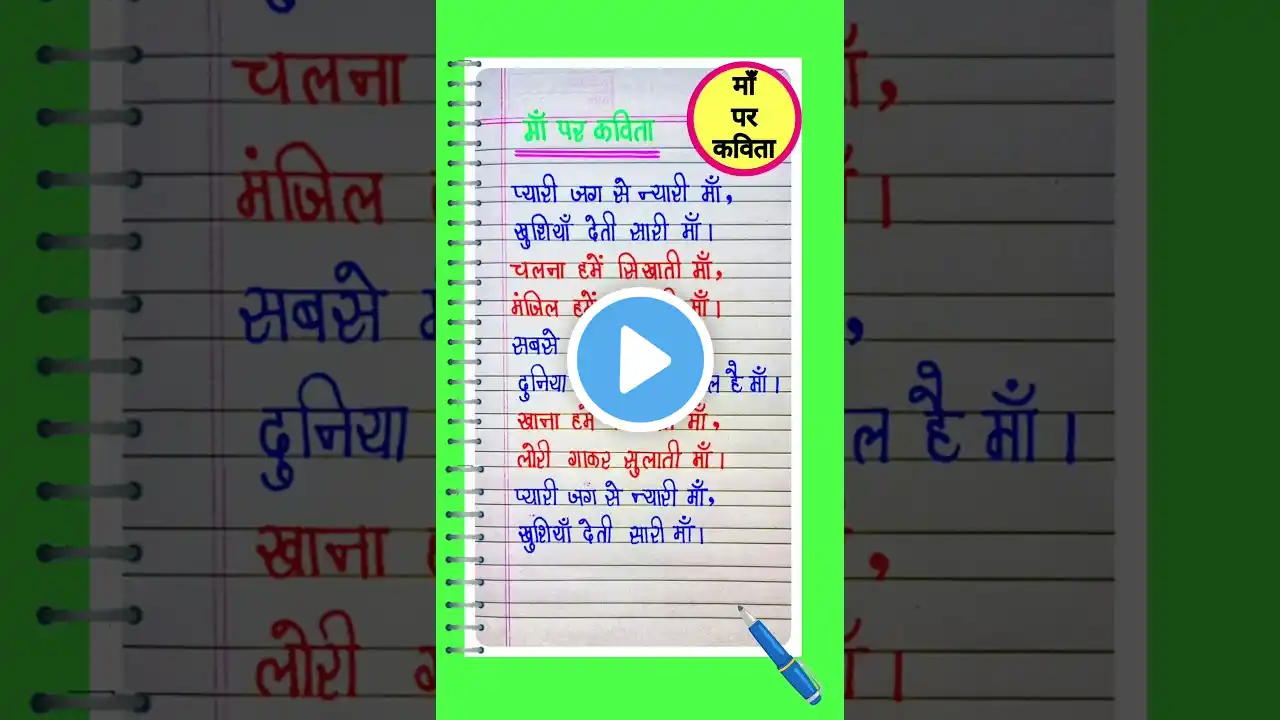 माँ
पर
कविता
माँ पर कविता
प्यारी जग से न्यारी माँ,
खुशियाँ देती सारी माँ।
चलना हमें सिखाती माँ,
मंजिल हमें माँ।
सबसे
दुनिया है माँ।
खाना हमें माँ,
लोरी गाकर सुलाती माँ।
प्यारी जग से न्यारी माँ,
खुशियाँ देती सारी माँ।